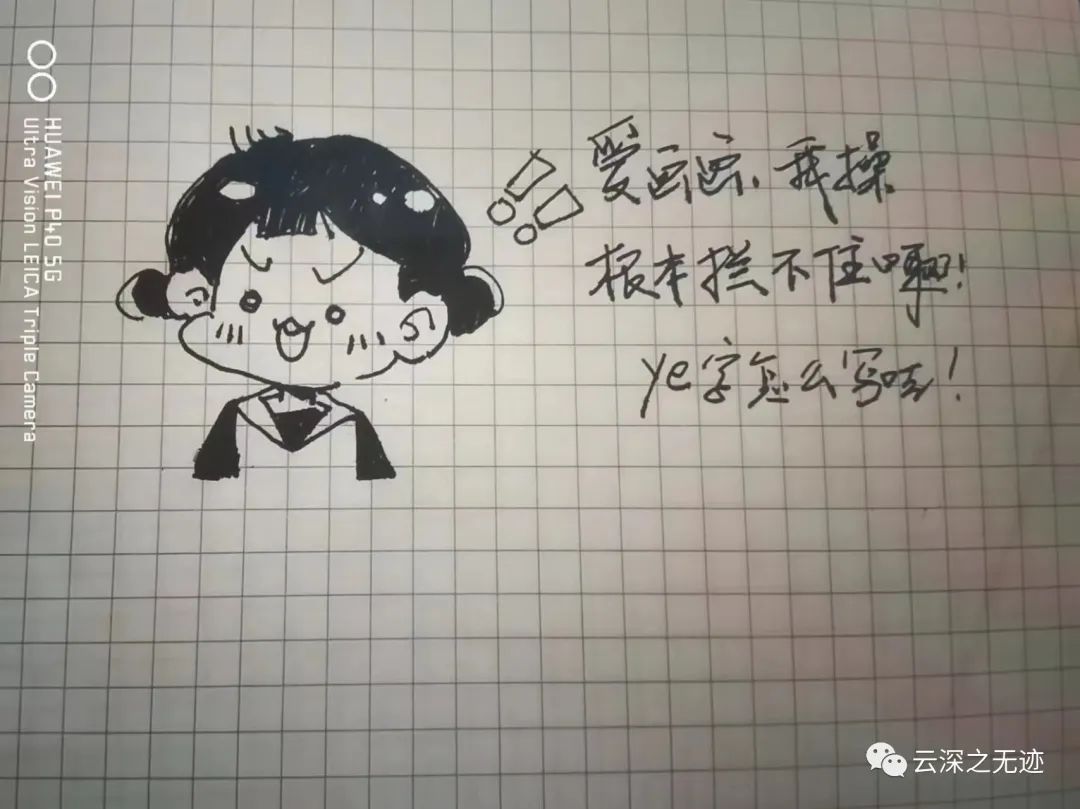 HUAWEI P40 5G
Ultra Vision LEICA Triple Camera
爱画画、我操
根本拦不住啊！
ye字怎么写呢！
云深之无迹